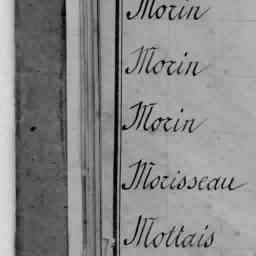 Morin
Morin
Morin
Morisseau
Mottais